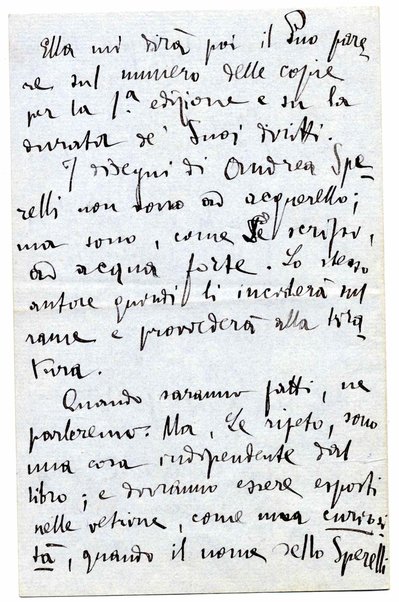 Ella mi dirà poi il Suo pare-
re sul numero delle copie
per la 1.ª edizione e su la
durata de' Suoi diritti.
I disegni di Andrea Spe-
relli non sono ad acquerello;
ma sono, come Le scrissi,
ad acqua forte. Lo stesso
autore quindi li inciderà sul
rame e provvederà alla tira
tura.
Quando saranno fatti, ne
parleremo. Ma, Le ripeto, sono
una cosa indipendente dal
libro; e dovranno essere esposti
nelle vetrine, come una curiosi
tà, quando il nome dello Sperelli